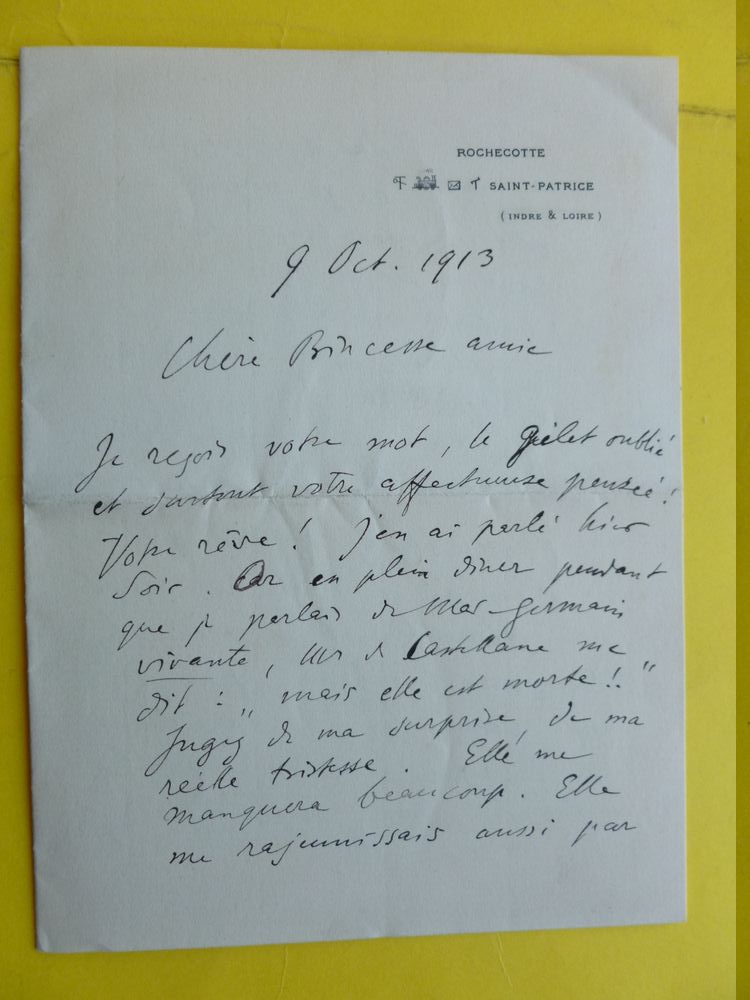 ROCHECOTTE
SAINT-PATRICE
(INDRE & LOIRE)
9 Oct. 1913
Chère Princesse amie
Je reçois votre mot, le gilet oublié
et surtout votre affectueuse pensée!
Votre rêve! J'en ai parlé hier
Soir. Or en plein diner pendant
que je parlais de Mme Germain
vivante, Mr de Castellane me
dit : „ mais elle est morte!! "
Jugez de ma surprise, de ma
réelle tristesse. Elle me
manquera beaucoup. Elle
me rajeunissais aussi par